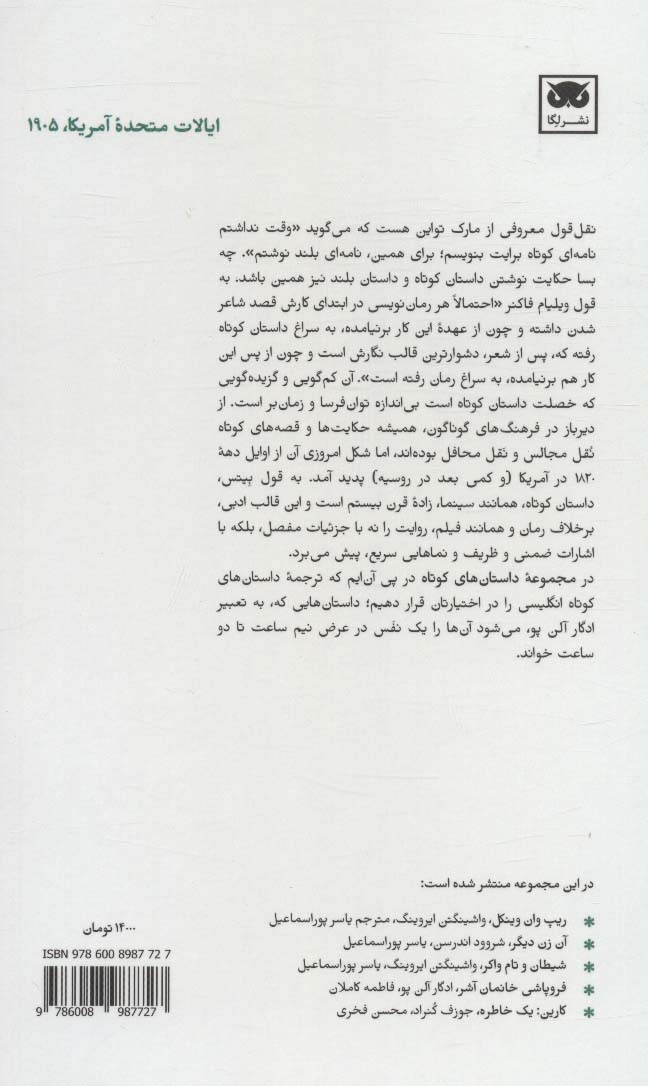 نشر لگا
ایالات متحدۀ آمریکا، ۱۹۰۵
نقل‌قول معروفی از مارک تواین هست که می‌گوید «وقت نداشتم
نامه‌ای کوتاه برایت بنویسم؛ برای همین، نامه‌ای بلند نوشتم». چه
بسا حکایت نوشتن داستان کوتاه و داستان بلند نیز همین باشد. به
قول ویلیام فاکنر «احتمالاً هر رمان‌نویسی در ابتدای کارش قصد شاعر
شدن داشته و چون از عهدۀ این کار برنیامده، به سراغ داستان کوتاه
رفته که، پس از شعر، دشوارترین قالب نگارش است و چون از پس این
کار هم برنیامده، به سراغ رمان رفته است». آن کم‌گویی و گزیده‌گویی
که خصلت داستان کوتاه است بی‌اندازه توان‌فرسا و زمان‌بر است. از
دیرباز در فرهنگ‌های گوناگون، همیشه حکایت‌ها و قصه‌های کوتاه
نُقل مجالس و نَقل محافل بوده‌اند، اما شکل امروزی آن از اوایل دهۀ
۱۸۲۰ در آمریکا (و کمی بعد در روسیه) پدید آمد. به قول بِیتس،
داستان کوتاه، همانند سینما، زادۀ قرن بیستم است و این قالب ادبی،
برخلاف رمان و همانند فیلم، روایت را نه با جزئیات مفصل، بلکه با
اشارات ضمنی و ظریف و نماهایی سریع، پیش می‌برد.
در مجموعۀ داستان‌های کوتاه در پی آن‌ایم که ترجمۀ داستان‌های
کوتاه انگلیسی را در اختیارتان قرار دهیم؛ داستان‌هایی که، به تعبیر
ادگار آلن پو، می‌شود آن‌ها را یک نفَس در عرض نیم ساعت تا دو
ساعت خواند.
در این مجموعه منتشر شده است:
* ریپ وان وینکل، واشینگتن ایروینگ، مترجم یاسر پوراسماعیل
* آن زن دیگر، شروود اندرسن، یاسر پوراسماعیل
* شیطان و تام واکر، واشینگتن ایروینگ، یاسر پوراسماعیل
* فروپاشی خانمان آشر، ادگار آلن پو، فاطمه کاملان
* کارین: یک خاطره، جوزف کُنراد، محسن فخری
۱۴۰۰۰ تومان
ISBN 978 600 8987 72 7
9 786008 987727